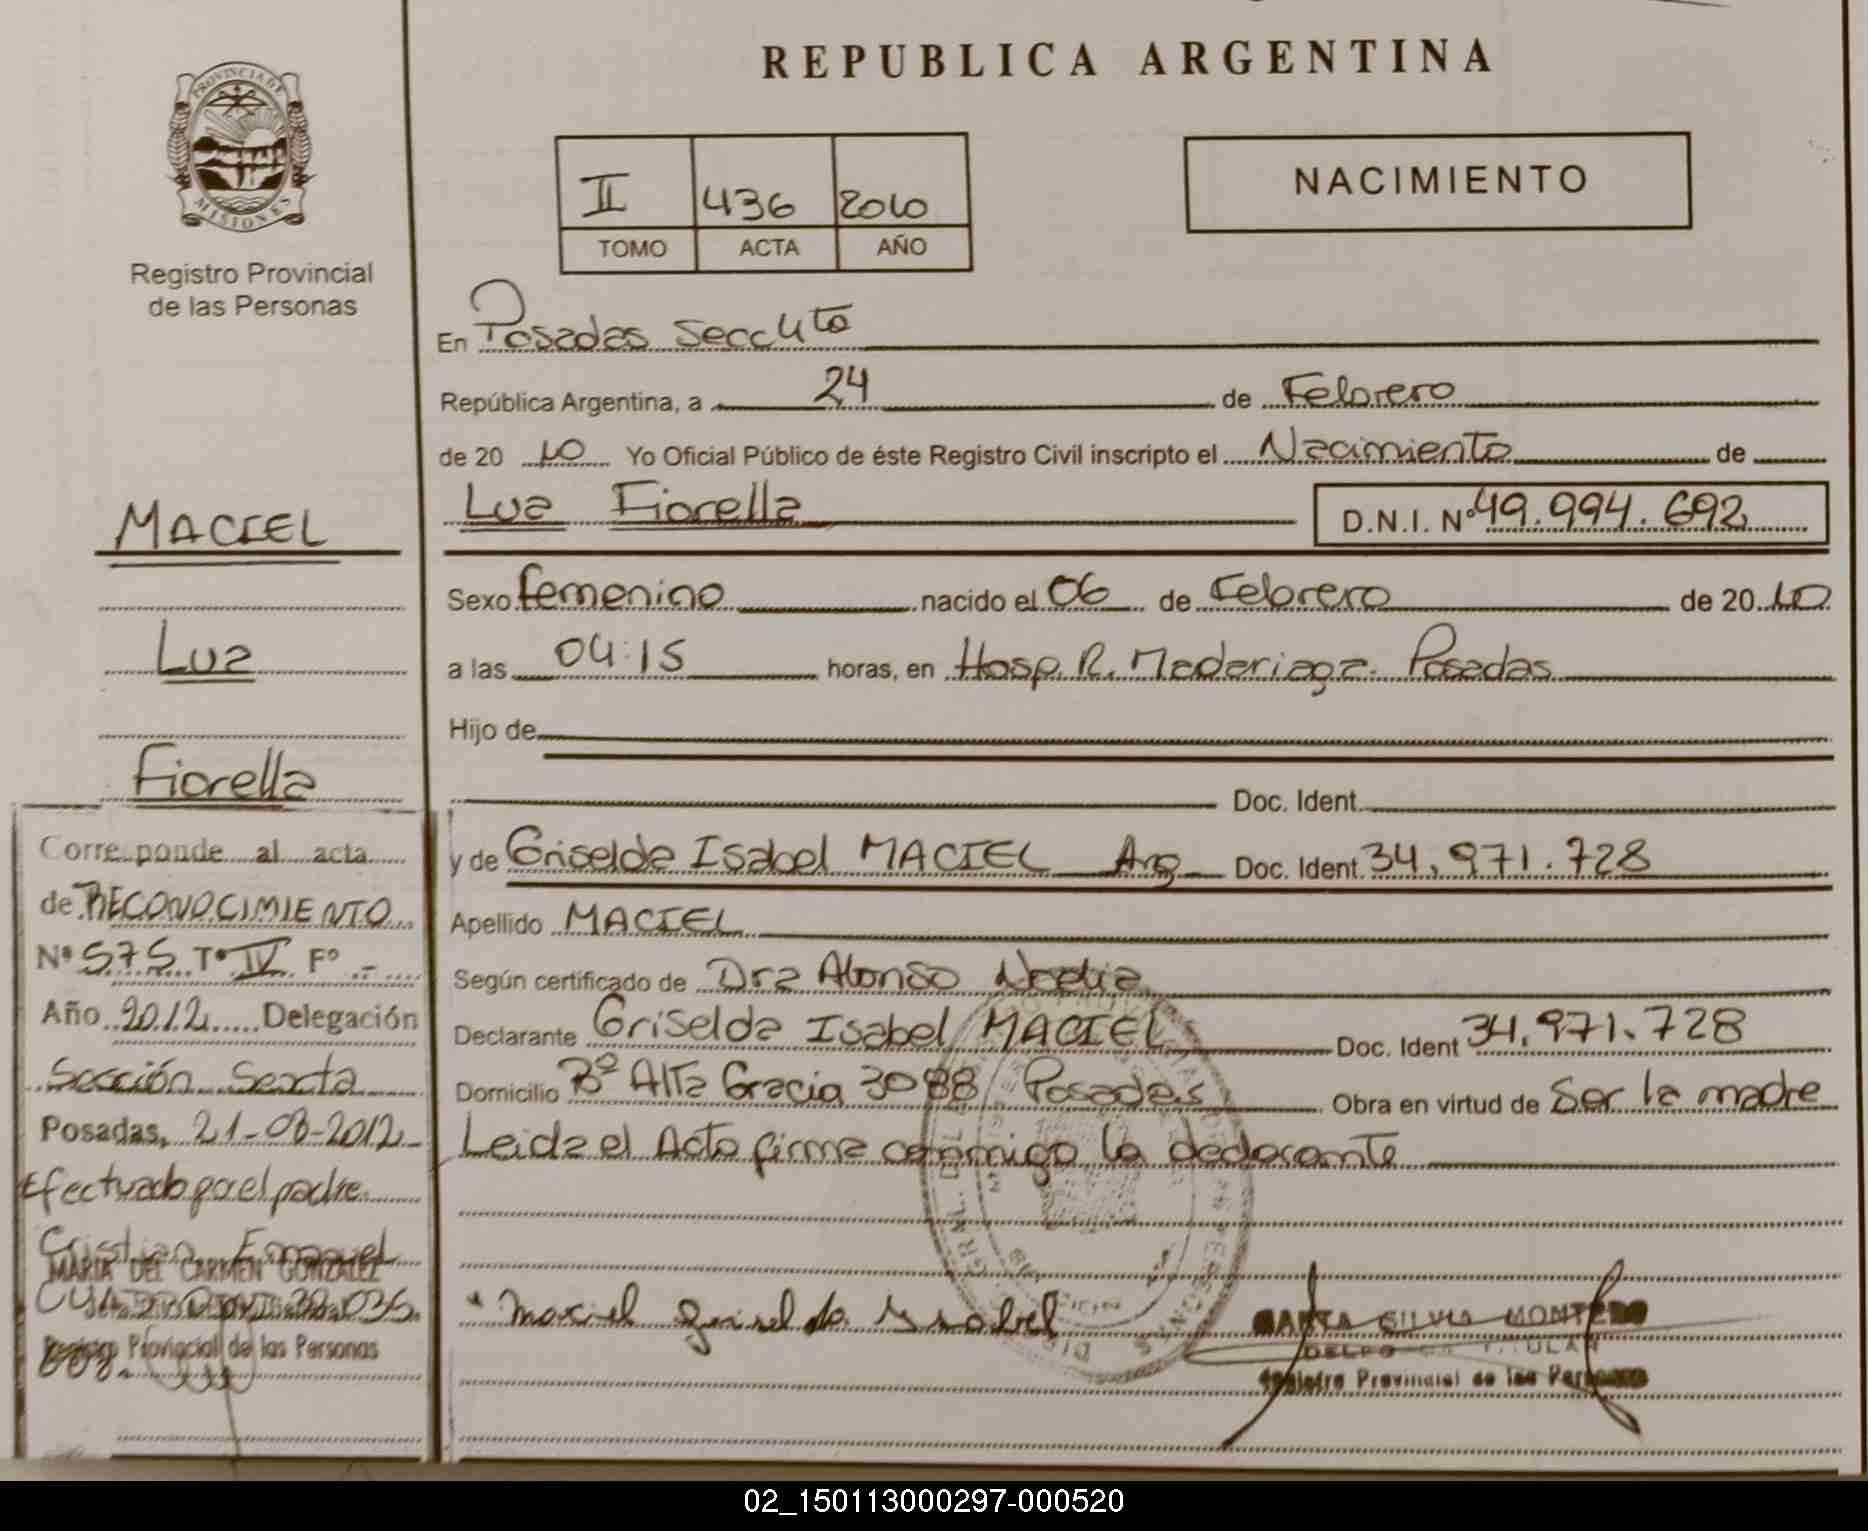 REPUBLICA ARGENTINA
PROVINCIA DE
MISIONES
Registro Provincial
de las Personas
II 436 2010
TOMO ACTA AÑO
NACIMIENTO
En Posadas Secc 6ta
República Argentina, a 24 de Febrero
de 20 10 Yo Oficial Público de éste Registro Civil inscripto el Nacimiento de
Luz Fiorella D.N.I. Nº 49.994.692
Sexo femenino nacido el 06 de Febrero de 20 10
a las 04:15 horas, en Hosp. R. Madariaga. Posadas
Hijo de
Doc. Ident.
y de Griselda Isabel MACIEL Arg Doc. Ident. 34.971.728
Apellido MACIEL
Según certificado de Dra Alonso Noelia
Declarante Griselda Isabel MACIEL Doc. Ident 34.971.728
Domicilio Bº Alta Gracia 3088 Posadas Obra en virtud de Ser la madre
Leida el Acta firma conmigo la declarante
Maciel Griselda Ysabel
MARTA SILVIA MONTERO
Registro Provincial de las Personas
MACIEL
Luz
Fiorella
Corresponde al acta
de RECONOCIMIENTO
Nº 575 Tº IV Fº -
Año 2012 Delegación
Sección Sexta
Posadas, 21-08-2012
Efectuado por el padre
Cristian Emanuel
MARIA DEL CARMEN GONZALEZ
Registro Provincial de las Personas
02_150113000297-000520